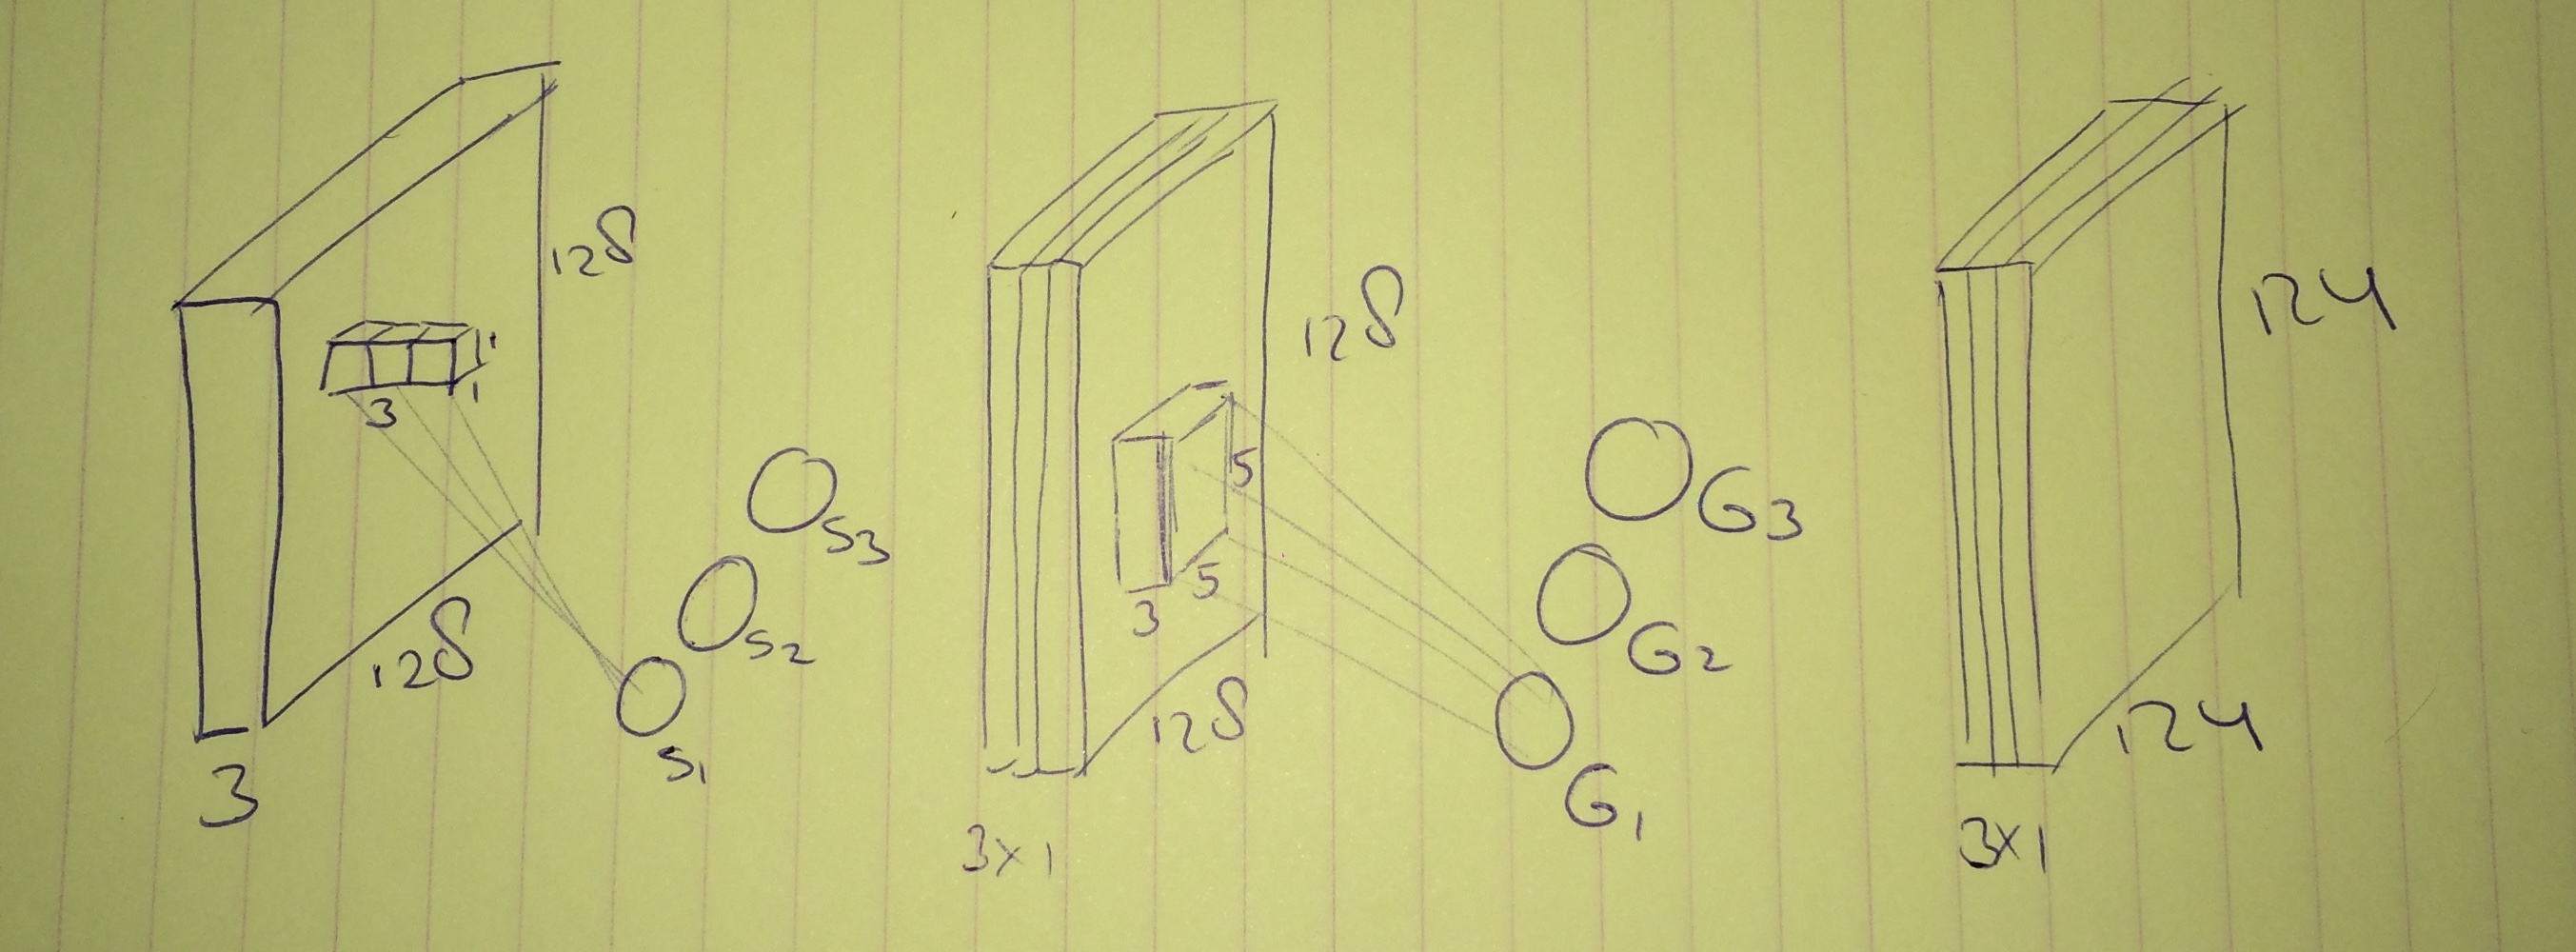 128
1
1
3
128
3
S3
S2
S1
128
5
5
3
128
3x1
G3
G2
G1
124
124
3x1